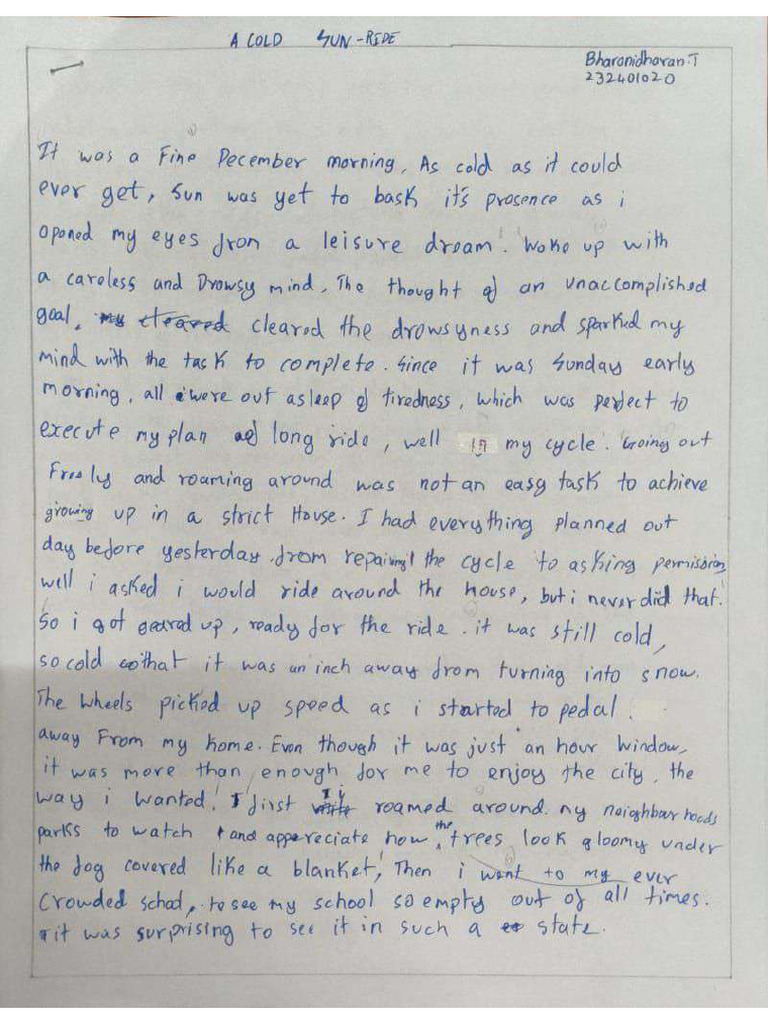 A COLD SUN-RIDE
Bharanidharan.T
232401020
It was a Fine December morning, As cold as it could
ever get, Sun was yet to bask it's presence as i
opened my eyes from a leisure dream. Woke up with
a careless and Drowsy mind, The thought of an unaccomplished
goal, my cleared cleared the drowsyness and sparked my
mind with the task to complete. Since it was Sunday early
morning, all were out asleep of tiredness, which was perfect to
execute my plan of long ride, well in my cycle. Going out
Freely and roaming around was not an easy task to achieve
growing up in a strict House. I had everything planned out
day before yesterday. from repairing the cycle to asking permission
well i asked i would ride around the house, but i never did that.
So i got geared up, ready for the ride. it was still cold,
so cold so that it was an inch away from turning into snow.
The wheels picked up speed as i started to pedal.
away From my home. Even though it was just an hour window,
it was more than enough for me to enjoy the city, the
way i wanted! I first roamed around my neighbar hoods
parks to watch and appreciate how the trees look gloomy under
the fog covered like a blanket, Then i went to my ever
Crowded schol, to see my school so empty out of all times.
it was surprising to see it in such a state.